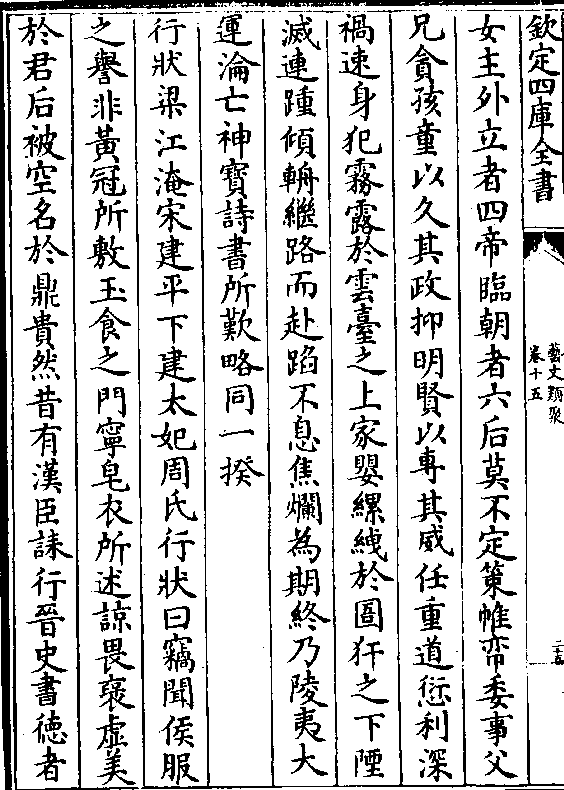 欽定四庫全書
藝文類聚
卷十五
二十五
女主外立者四帝臨朝者六后莫不定策帷帟委事父
兄貪孩童以久其政抑明賢以專其威任重道悠利深
禍速身犯霧露於雲臺之上家嬰縲絏於圄犴之下陻
滅連踵傾輈繼路而赴蹈不息焦爛為期終乃陵夷大
運淪亡神寳詩書所歎略同一揆
行狀梁江淹宋建平下建太妃周氏行狀曰竊聞侯服
之譽非黃冠所敷玉食之門寧皂衣所述諒畏褒虛美
於君后被空名於鼎貴然昔有漢臣誄行晉史書德者